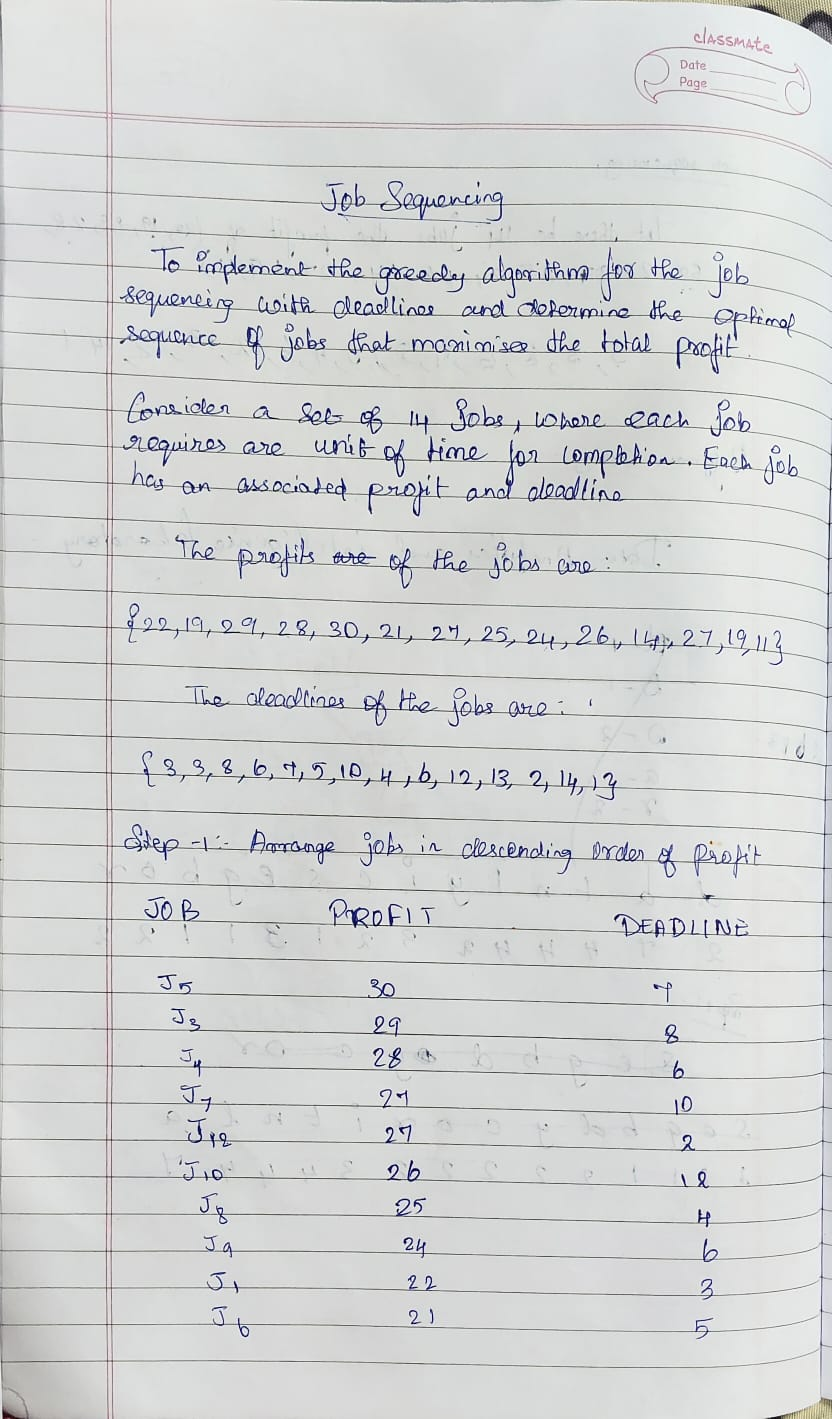 classmate
Date
Page
Job Sequencing
To implement the greedy algorithm for the job
sequencing with deadlines and determine the optimal
sequence of jobs that maximises the total profit.
Consider a set of 14 jobs, where each job
requires are unit of time for completion. Each job
has an associated profit and deadline
The profits are of the jobs are:
{22, 19, 29, 28, 30, 21, 27, 25, 24, 26, 14, 27, 19, 11}
The deadlines of the jobs are:
{3, 3, 8, 6, 7, 5, 10, 4, 6, 12, 13, 2, 14, 1}
Step -1:- Arrange jobs in descending order of profit
JOB PROFIT DEADLINE
J5 30 7
J3 29 8
J4 28 6
J7 27 10
J12 27 2
J10 26 12
J8 25 4
J9 24 6
J1 22 3
J6 21 5